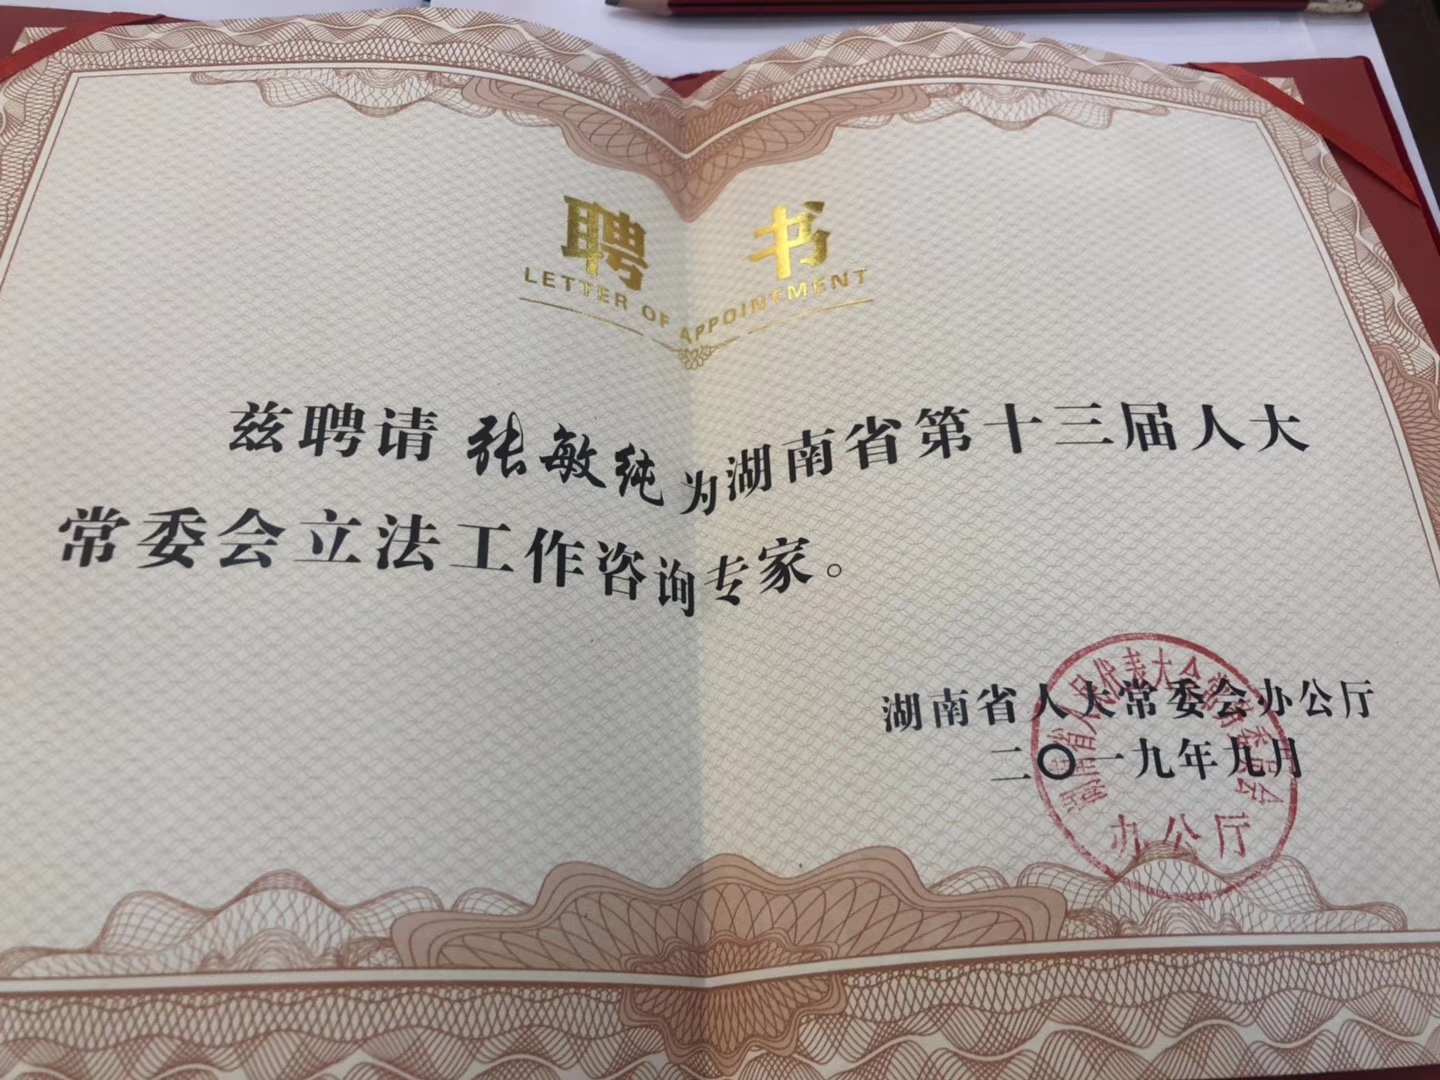 聘书
LETTER OF APPOINTMENT
兹聘请 张敏纯 为湖南省第十三届人大
常委会立法工作咨询专家。
湖南省人大常委会办公厅
二〇一九年九月
湖南省人民代表大会常务委员会
办公厅